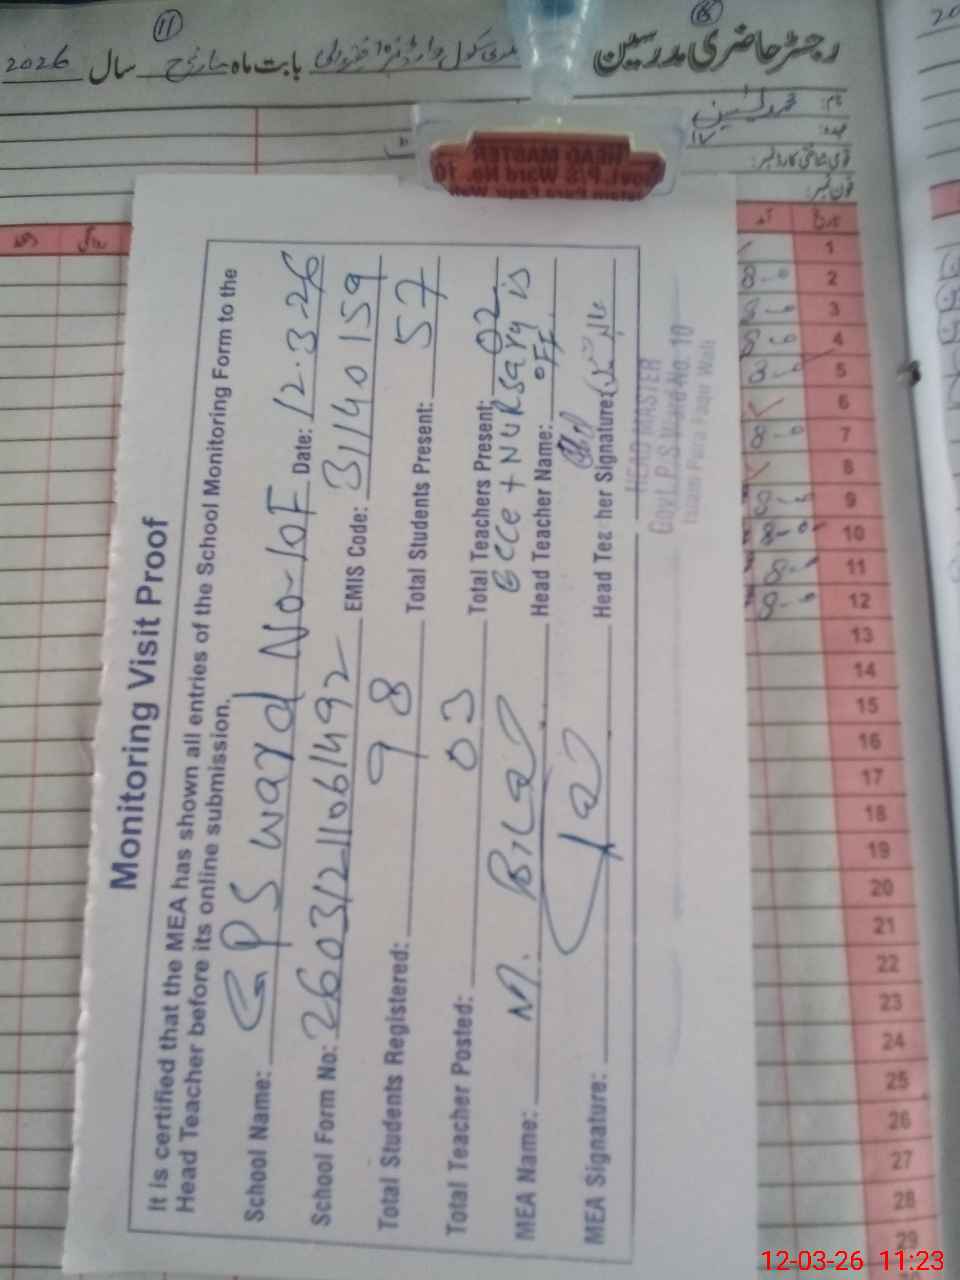 رجسٹر حاضری مدرسین
بابت ماہ مارچ سال 2026
نام:
عہدہ:
قومی شناختی کارڈ نمبر:
فون نمبر:
HEAD MASTER
Govt. P/S Ward No. 10
Monitoring Visit Proof
It is certified that the MEA has shown all entries of the School Monitoring Form to the
Head Teacher before its online submission.
School Name: GPS ward No-10F Date: 12.3.26
School Form No: EMIS Code: 31140159
Total Students Registered: 98 Total Students Present: 57
Total Teacher Posted: 03 Total Teachers Present: 02
ECCE + NURSARY is OFF
MEA Name: M. Bilal Head Teacher Name:
MEA Signature: Head Teacher Signature:
HEAD MASTER
Govt. P.S Ward No. 10
Islam Pura Faqir Wali
تاریخ آمد
1
2 8-0
3 8-0
4 8-0
5 8-0
6
7 8-0
8
9 8-0
10 8-0
11 8-0
12 8-0
13
14
15
16
17
18
19
20
21
22
23
24
25
26
27
28
29
12-03-26 11:23